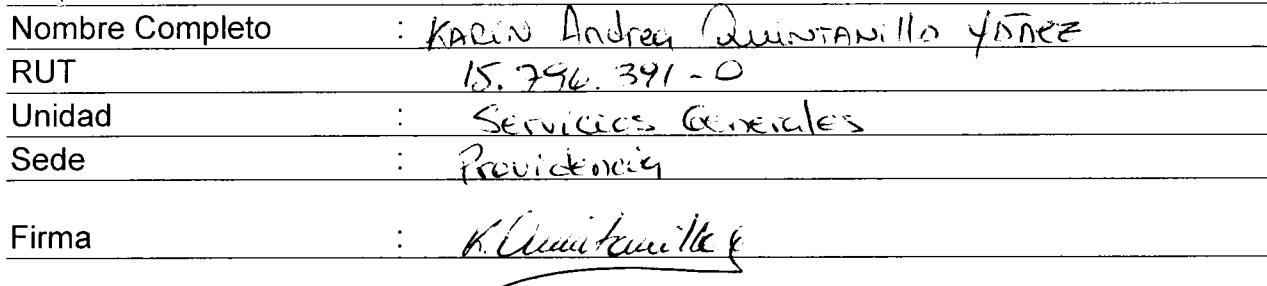 Nombre Completo : KARIN Andrea QUINTANILLA YAÑEZ
RUT 15.796.391-0
Unidad : Servicios Generales
Sede : Providencia
Firma : K.Quintanilla Y